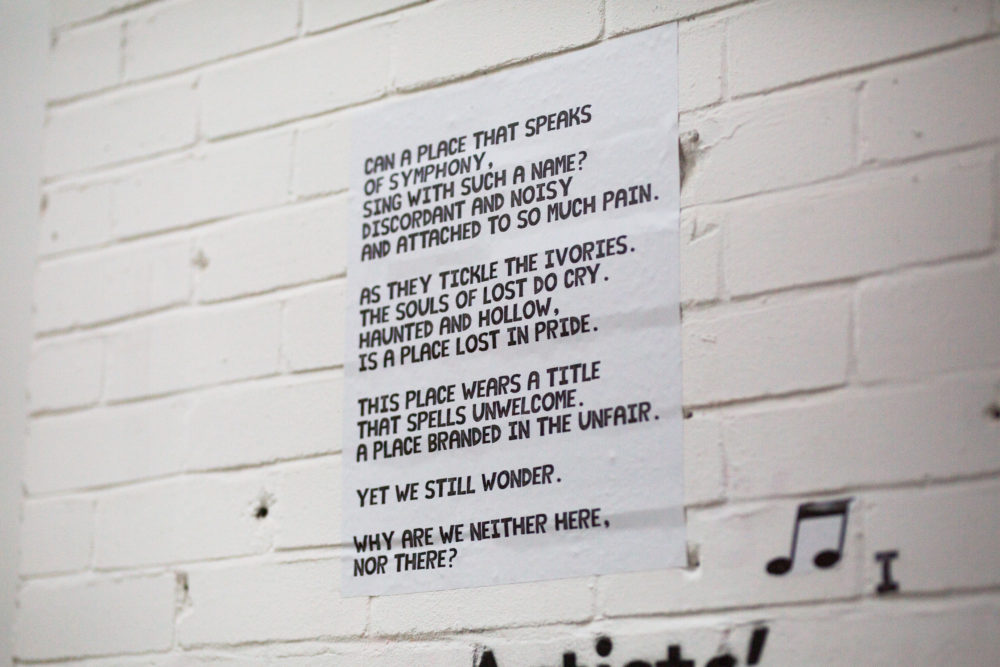 CAN A PLACE THAT SPEAKS
OF SYMPHONY,
SING WITH SUCH A NAME?
DISCORDANT AND NOISY
AND ATTACHED TO SO MUCH PAIN.
AS THEY TICKLE THE IVORIES.
THE SOULS OF LOST DO CRY.
HAUNTED AND HOLLOW,
IS A PLACE LOST IN PRIDE.
THIS PLACE WEARS A TITLE
THAT SPELLS UNWELCOME.
A PLACE BRANDED IN THE UNFAIR.
YET WE STILL WONDER.
WHY ARE WE NEITHER HERE,
NOR THERE?
I
Artists'